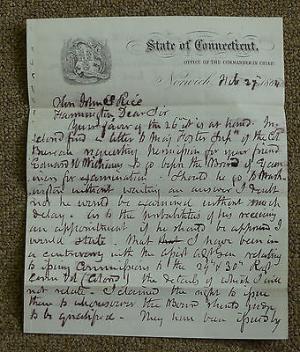 State of Connecticut,
OFFICE OF THE COMMANDER IN CHIEF.
Norwich, Feb 27 1864
Hon John A Rice
Farmington Dear Sir
Your favor of the 26" is at hand. I
second find a letter to Maj Foster of the Col
Bureau requesting permission for your friend
Edward W Williams to go before the Board of Exam
iners for examination. Should he go to Wash
ington without waiting an answer I doubt
not he would be examined without much
delay. As to the probabilities of his receiving
an appointment if he should be approved I
would state. That I have been in
a controversy with the relating
to issuing Commissions to the 29" & 30" Regt
Conn Vol (Colored) the details of which I will
not relate. I claimed the right to issue
them to whomsoever the Board should judge
to be qualified. They have been issued by